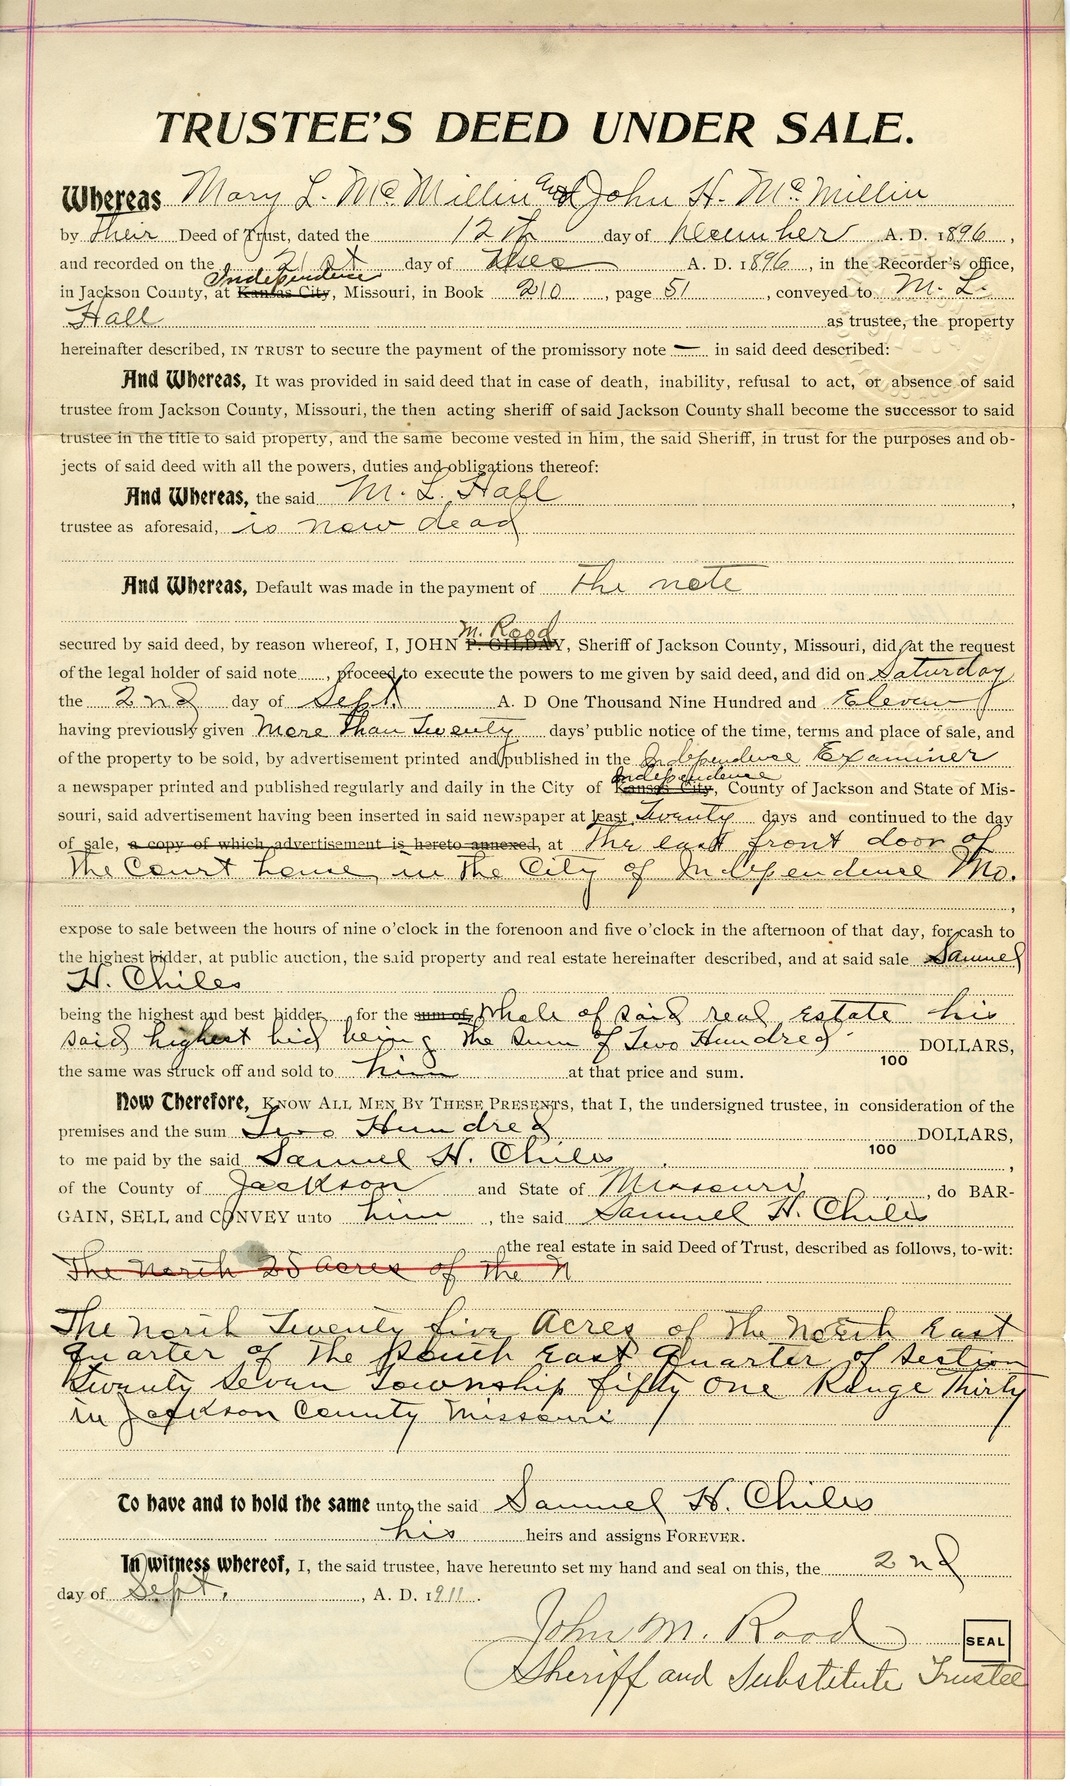 TRUSTEE'S DEED UNDER SALE.
Whereas Mary L. McMillin and John H. McMillin
by their Deed of Trust, dated the 12th day of December A. D. 1896,
and recorded on the 21st day of Dec A. D. 1896, in the Recorder's office,
Independence
in Jackson County, at Kansas City, Missouri, in Book 210, page 51, conveyed to M. L.
Hall as trustee, the property
hereinafter described, IN TRUST to secure the payment of the promissory note — in said deed described:
And Whereas, It was provided in said deed that in case of death, inability, refusal to act, or absence of said
trustee from Jackson County, Missouri, the then acting sheriff of said Jackson County shall become the successor to said
trustee in the title to said property, and the same become vested in him, the said Sheriff, in trust for the purposes and ob-
jects of said deed with all the powers, duties and obligations thereof:
And Whereas, the said M. L. Hall,
trustee as aforesaid, is now dead
And Whereas, Default was made in the payment of the note
M. Rood
secured by said deed, by reason whereof, I, JOHN P. GILDAY, Sheriff of Jackson County, Missouri, did at the request
of the legal holder of said note, proceed to execute the powers to me given by said deed, and did on Saturday
the 2nd day of Sept. A. D One Thousand Nine Hundred and Eleven
having previously given More than Twenty days' public notice of the time, terms and place of sale, and
of the property to be sold, by advertisement printed and published in the Independence Examiner
Independence
a newspaper printed and published regularly and daily in the City of Kansas City, County of Jackson and State of Mis-
souri, said advertisement having been inserted in said newspaper at least Twenty days and continued to the day
of sale, a copy of which advertisement is hereto annexed, at The east front door of
the Court house, in the City of Independence Mo.,
expose to sale between the hours of nine o'clock in the forenoon and five o'clock in the afternoon of that day, for cash to
the highest bidder, at public auction, the said property and real estate hereinafter described, and at said sale Samuel
H. Chiles
being the highest and best bidder for the sum of, Whole of said real estate his
said highest bid being the sum of Two Hundred 100 DOLLARS,
the same was struck off and sold to him at that price and sum.
Now Therefore, KNOW ALL MEN BY THESE PRESENTS, that I, the undersigned trustee, in consideration of the
premises and the sum Two Hundred 100 DOLLARS,
to me paid by the said Samuel H. Chiles,
of the County of Jackson and State of Missouri, do BAR-
GAIN, SELL and CONVEY unto him, the said Samuel H. Chiles
the real estate in said Deed of Trust, described as follows, to-wit:
The North 25 acres of the N
The North Twenty five Acres of the North East
Quarter of the South East Quarter of Section
Twenty Seven Township fifty One Range Thirty
in Jackson County Missouri
To have and to hold the same unto the said Samuel H. Chiles
his heirs and assigns FOREVER.
In witness whereof, I, the said trustee, have hereunto set my hand and seal on this, the 2nd
day of Sept., A. D. 1911.
John M. Rood SEAL
Sheriff and Substitute Trustee